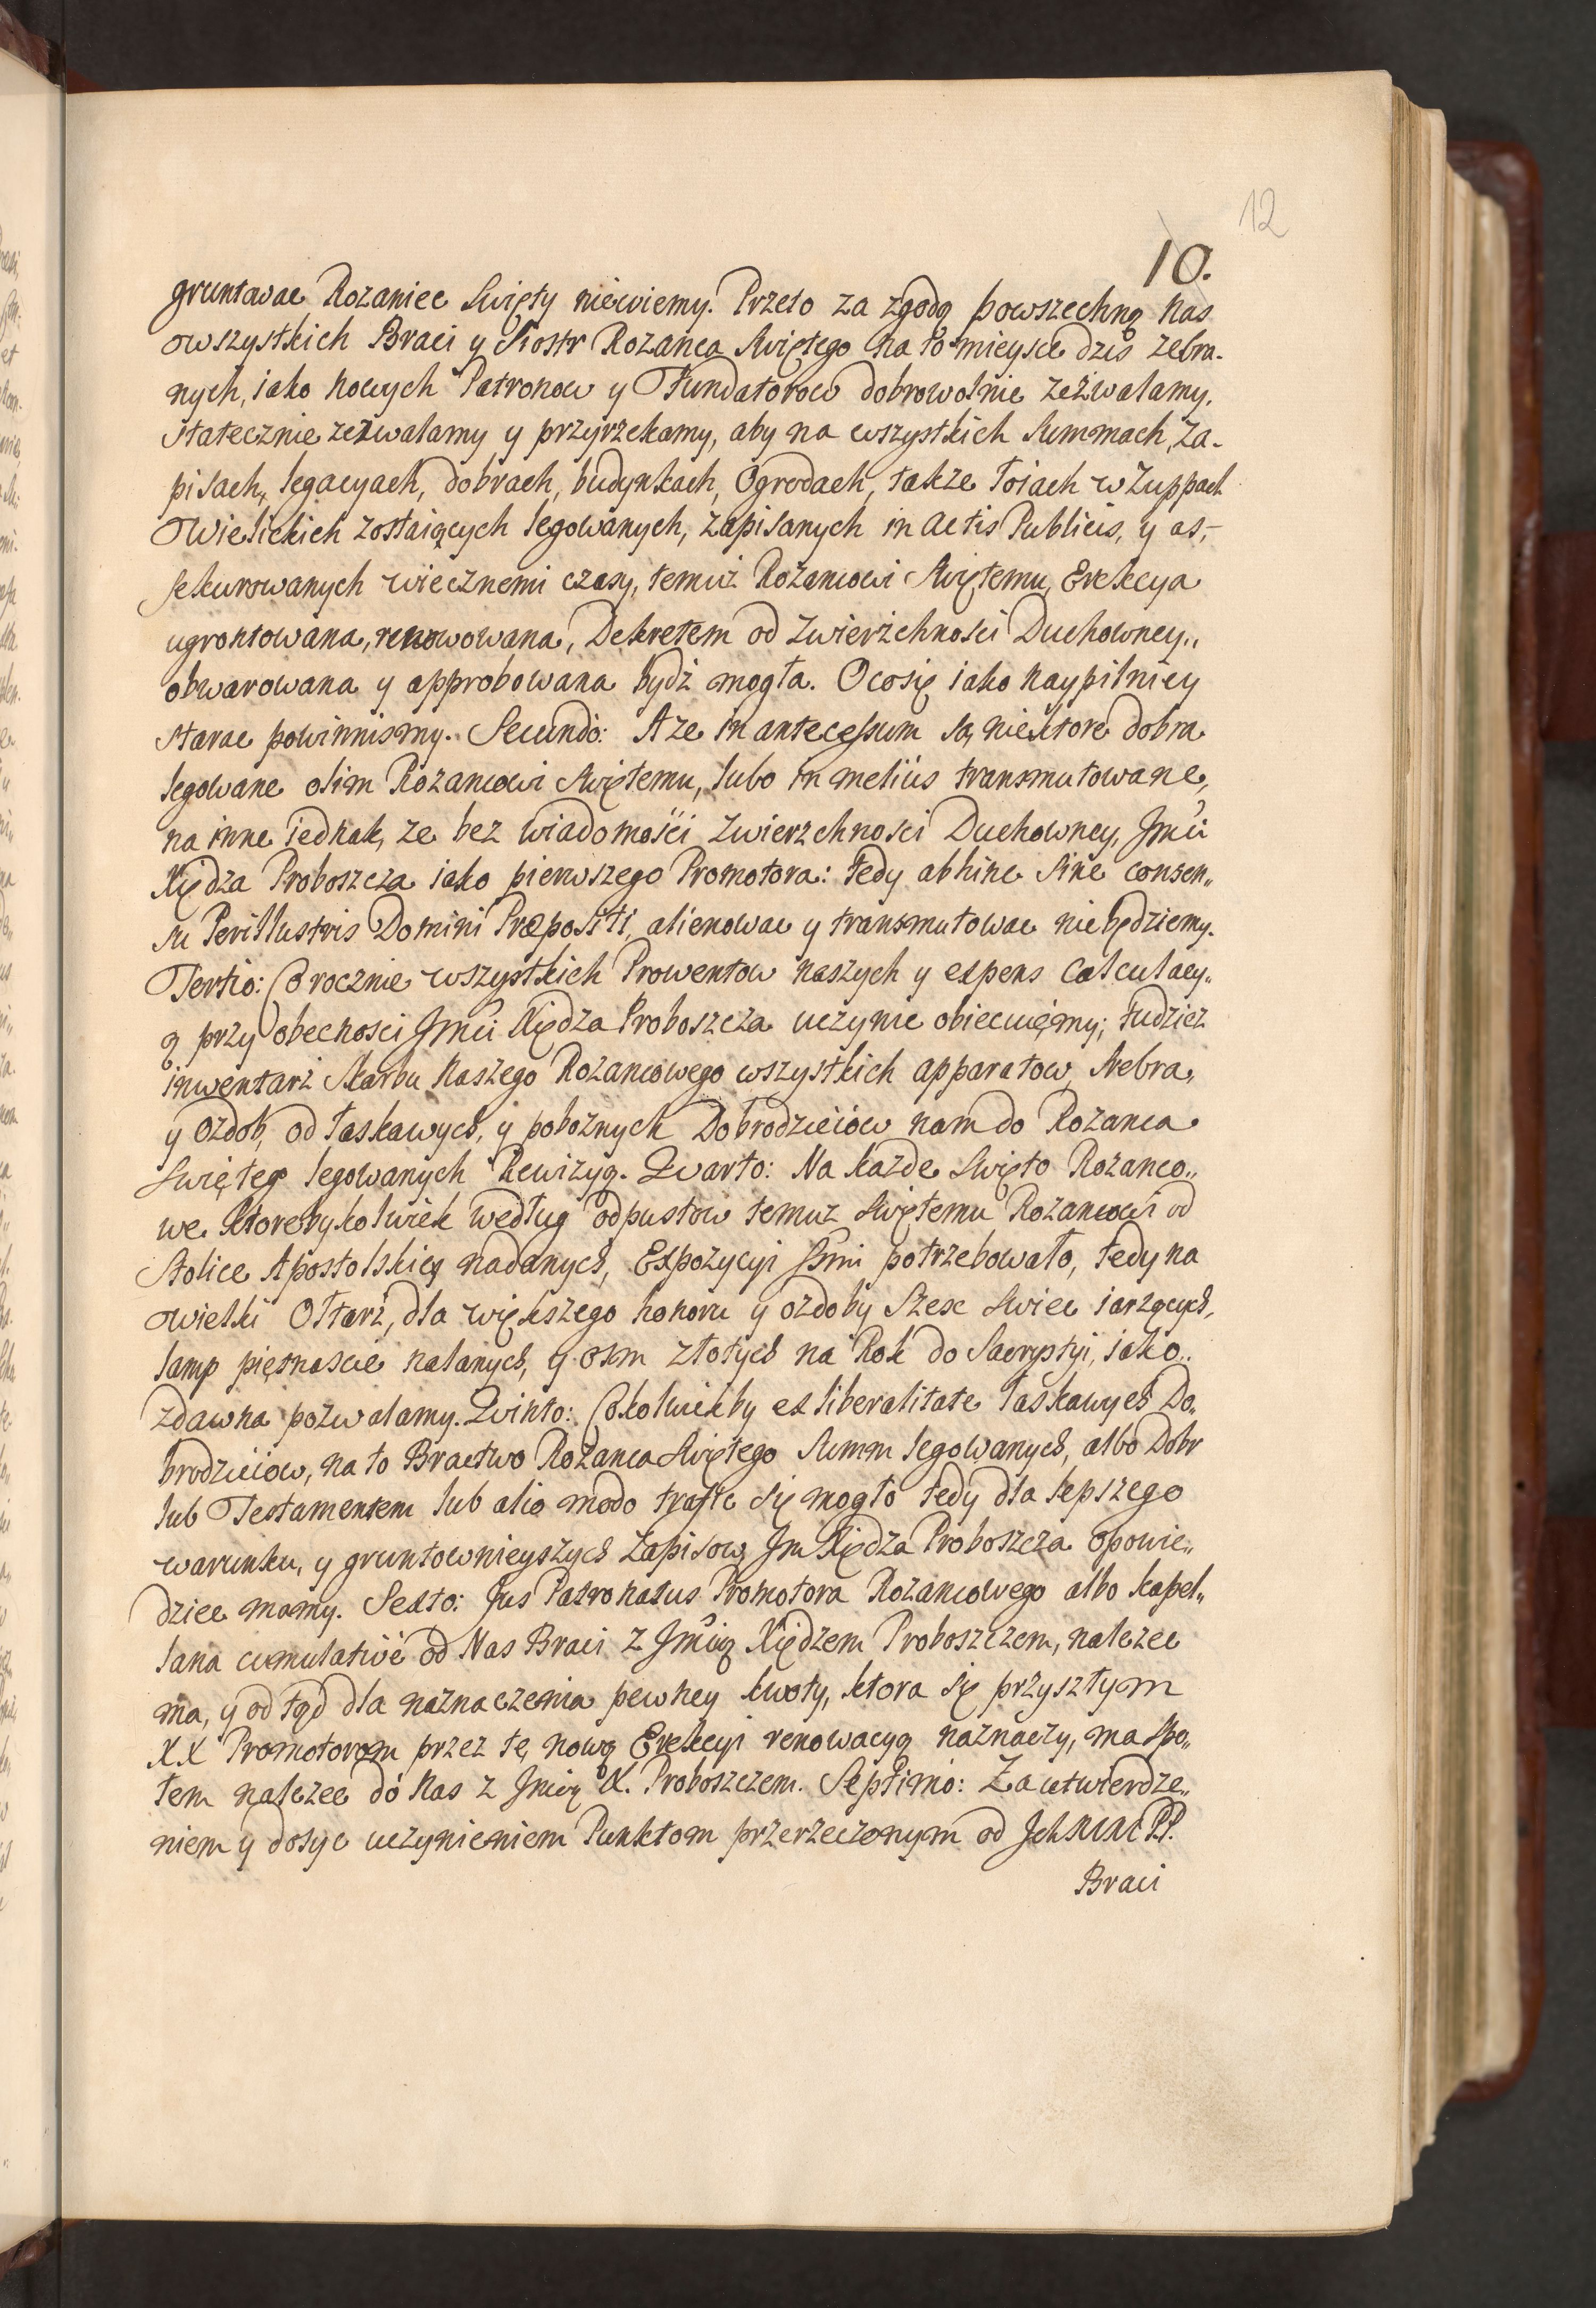 12
10.
gruntowac Rozaniec Swięty niewiemy. Przeto za zgodą powszechną Nas
wszystkich Braci y Siostr Rozanca Swiętego na to mieysce dzis zebra-
nych, iako nowych Patronow y Fundatorow dobrowolnie zezwalamy,
statecznie zezwalamy y przyrzekamy, aby na wszystkich Summach, Za-
pisach, legacyach, dobrach, budynkach, Ogrodach, takze Łoiach w Zuppach
Wielickich zostaiących legowanych, zapisanych in Actis Publicis, y as,-
sekurowanych wiecznemi czasy, temuż Rozancowi Swiętemu, Erekcya
ugrontowana, renowowana, Dekretem od Zwierzchnosci Duchowney,,
obwarowana y approbowana bydź mogła. Ocosię iako naypilniey
starac powinnismy. Secundò: A ze in antecessum są niektore dobra
legowane olim Rozancowi Swiętemu, lubo in melius transmutowane,
na inne iednak, ze bez wiadomości Zwierzchnosci Duchowney, Jmći
Xiędza Proboszcza iako pierwszego Promotora: tedy abhinc sine consen,,
su Perillustris Domini Præpositi, alienowac y transmutowac niebędziemy.
Tertio: Corocznie wszystkich Prowentow naszych y expens Calculacy,,
ą przy obecnosci Jmći Xiędza Proboszcza uczynic obiecuięmy; tudziez
inwentarż Skarbu Naszego Rozancowego wszystkich apparatow, srebra,
y ozdob, od łaskawych, y poboznych Dobrodzieiow nam do Rozanca
Swięteg legowanych Rewizyą. Quarto: Na kazde Swięto Rozanco,,
we ktorebykolwiek według odpustow temuz Swiętemu Rozancowi od
Stolice Apostolskiey nadanych, Expozycyi SSmi potrzebowało, tedy na
wielki Ołtarż, dla większego honoru y ozdoby Szesc swiec iarzących,
lamp piętnascie nalanych, y osm złotych na Rok do Sacrystyi, iako,,
zdawna pozwalamy. Quinto: Cokolwiekby ex liberalitate łaskawych Do,
brodzieiow, na to Bractwo Rozanca Swiętego Summ legowanych, albo Dobr
lub Testamentem lub alio modo trafic się mogło tedy dla lepszego
warunku, y gruntownieyszych Zapisow, Jm Xiędza Proboszcza opowie,,
dziec mamy. Sexto: Jus Patronatus Promotora Rozancowego albo kapel,,
lana cumulativè od Nas Braci z Jmćią Xiędzem Proboszczem, nalezec
ma, y od tąd dla naznaczenia pewney kwoty, ktora się przyszłym
XX Promotorom przez tę nową Erekcyi renowacyą naznaczy, ma spo,,
łem nalezec do Nas z Jmcią X. Proboszczem. Septimo: Za utwierdze,,
niem y dosyc uczynieniem Punktom przerzeczonym od Jch PP.
Braci